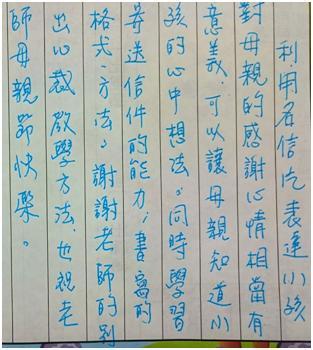 利用名信片表達小孩
對母親的感謝心情相當有
意義,可以讓母親知道小
孩的心中想法。同時學習
寄送信件的能力,書寫的
格式、方法。謝謝老師的別
出心裁教學方法,也祝老
師母親節快樂。